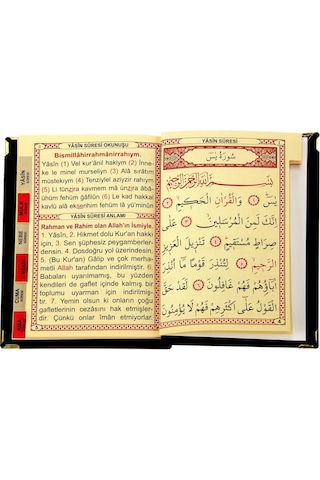 YÂSİN SÛRESİ OKUNUŞU
Bismillâhirrahmânirrahıym.
Yâsîn (1) Vel kur'ânil hakiym (2) İnne-
ke le minel murseliyn (3) Alâ sırâtım
müstekıym (4) Tenziylel aziyzir rahıym
(5) Li tünzira kavmem mâ ünzira âbâ-
ühüm fehüm ğâfilûn (6) Le kad hakkal
kavlü alâ ekserihim fehüm lâ yü'minûn
YÂSİN SÛRESİ ANLAMI
Rahman ve Rahim olan Allah'ın İsmiyle.
1. Yâsîn, 2. Hikmet dolu Kur'an hakkı
için, 3. Sen şüphesiz peygamberler-
densin. 4. Dosdoğru yol üzerindesin.
5. (Bu Kur'an) Gâlip ve çok merha-
metli Allah tarafından indirilmiştir. 6.
Babaları uyarılmamış, bu yüzden
kendileri de gaflet içinde kalmış bir
toplumu uyarman için indirilmiş-
tir. 7. Yemin olsun ki onların çoğu
gafletlerinin cezasını hak etmişler-
dir. Çünkü onlar îman etmiyorlar.
YÂSİN
NEBE
CUMA
YÂSİN SÛRESİ
سُورَةُ يٰسٓ
بِسْمِ اللّٰهِ الرَّحْمٰنِ الرَّحِيمِ
يٰسٓ ﴿١﴾ وَالْقُرْاٰنِ الْحَكِيمِ ﴿٢﴾
اِنَّكَ لَمِنَ الْمُرْسَلِينَ ﴿٣﴾ عَلٰى
صِرَاطٍ مُسْتَقِيمٍ ﴿٤﴾ تَنْزِيلَ الْعَزِيزِ
الرَّحِيمِ ﴿٥﴾ لِتُنْذِرَ قَوْمًا مَٓا اُنْذِرَ
اٰبَٓاؤُ۬هُمْ فَهُمْ غَافِلُونَ ﴿٦﴾ لَقَدْ حَقَّ
الْقَوْلُ عَلٰٓى اَكْثَرِهِمْ فَهُمْ لَا يُؤْمِنُونَ
4